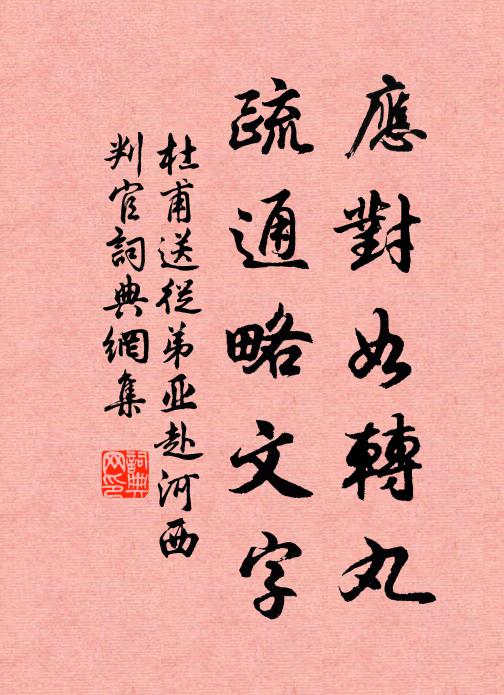 應對如轉丸
疏通略文字
杜甫送從弟亚赴河西
判官詞典網集
詞典网印